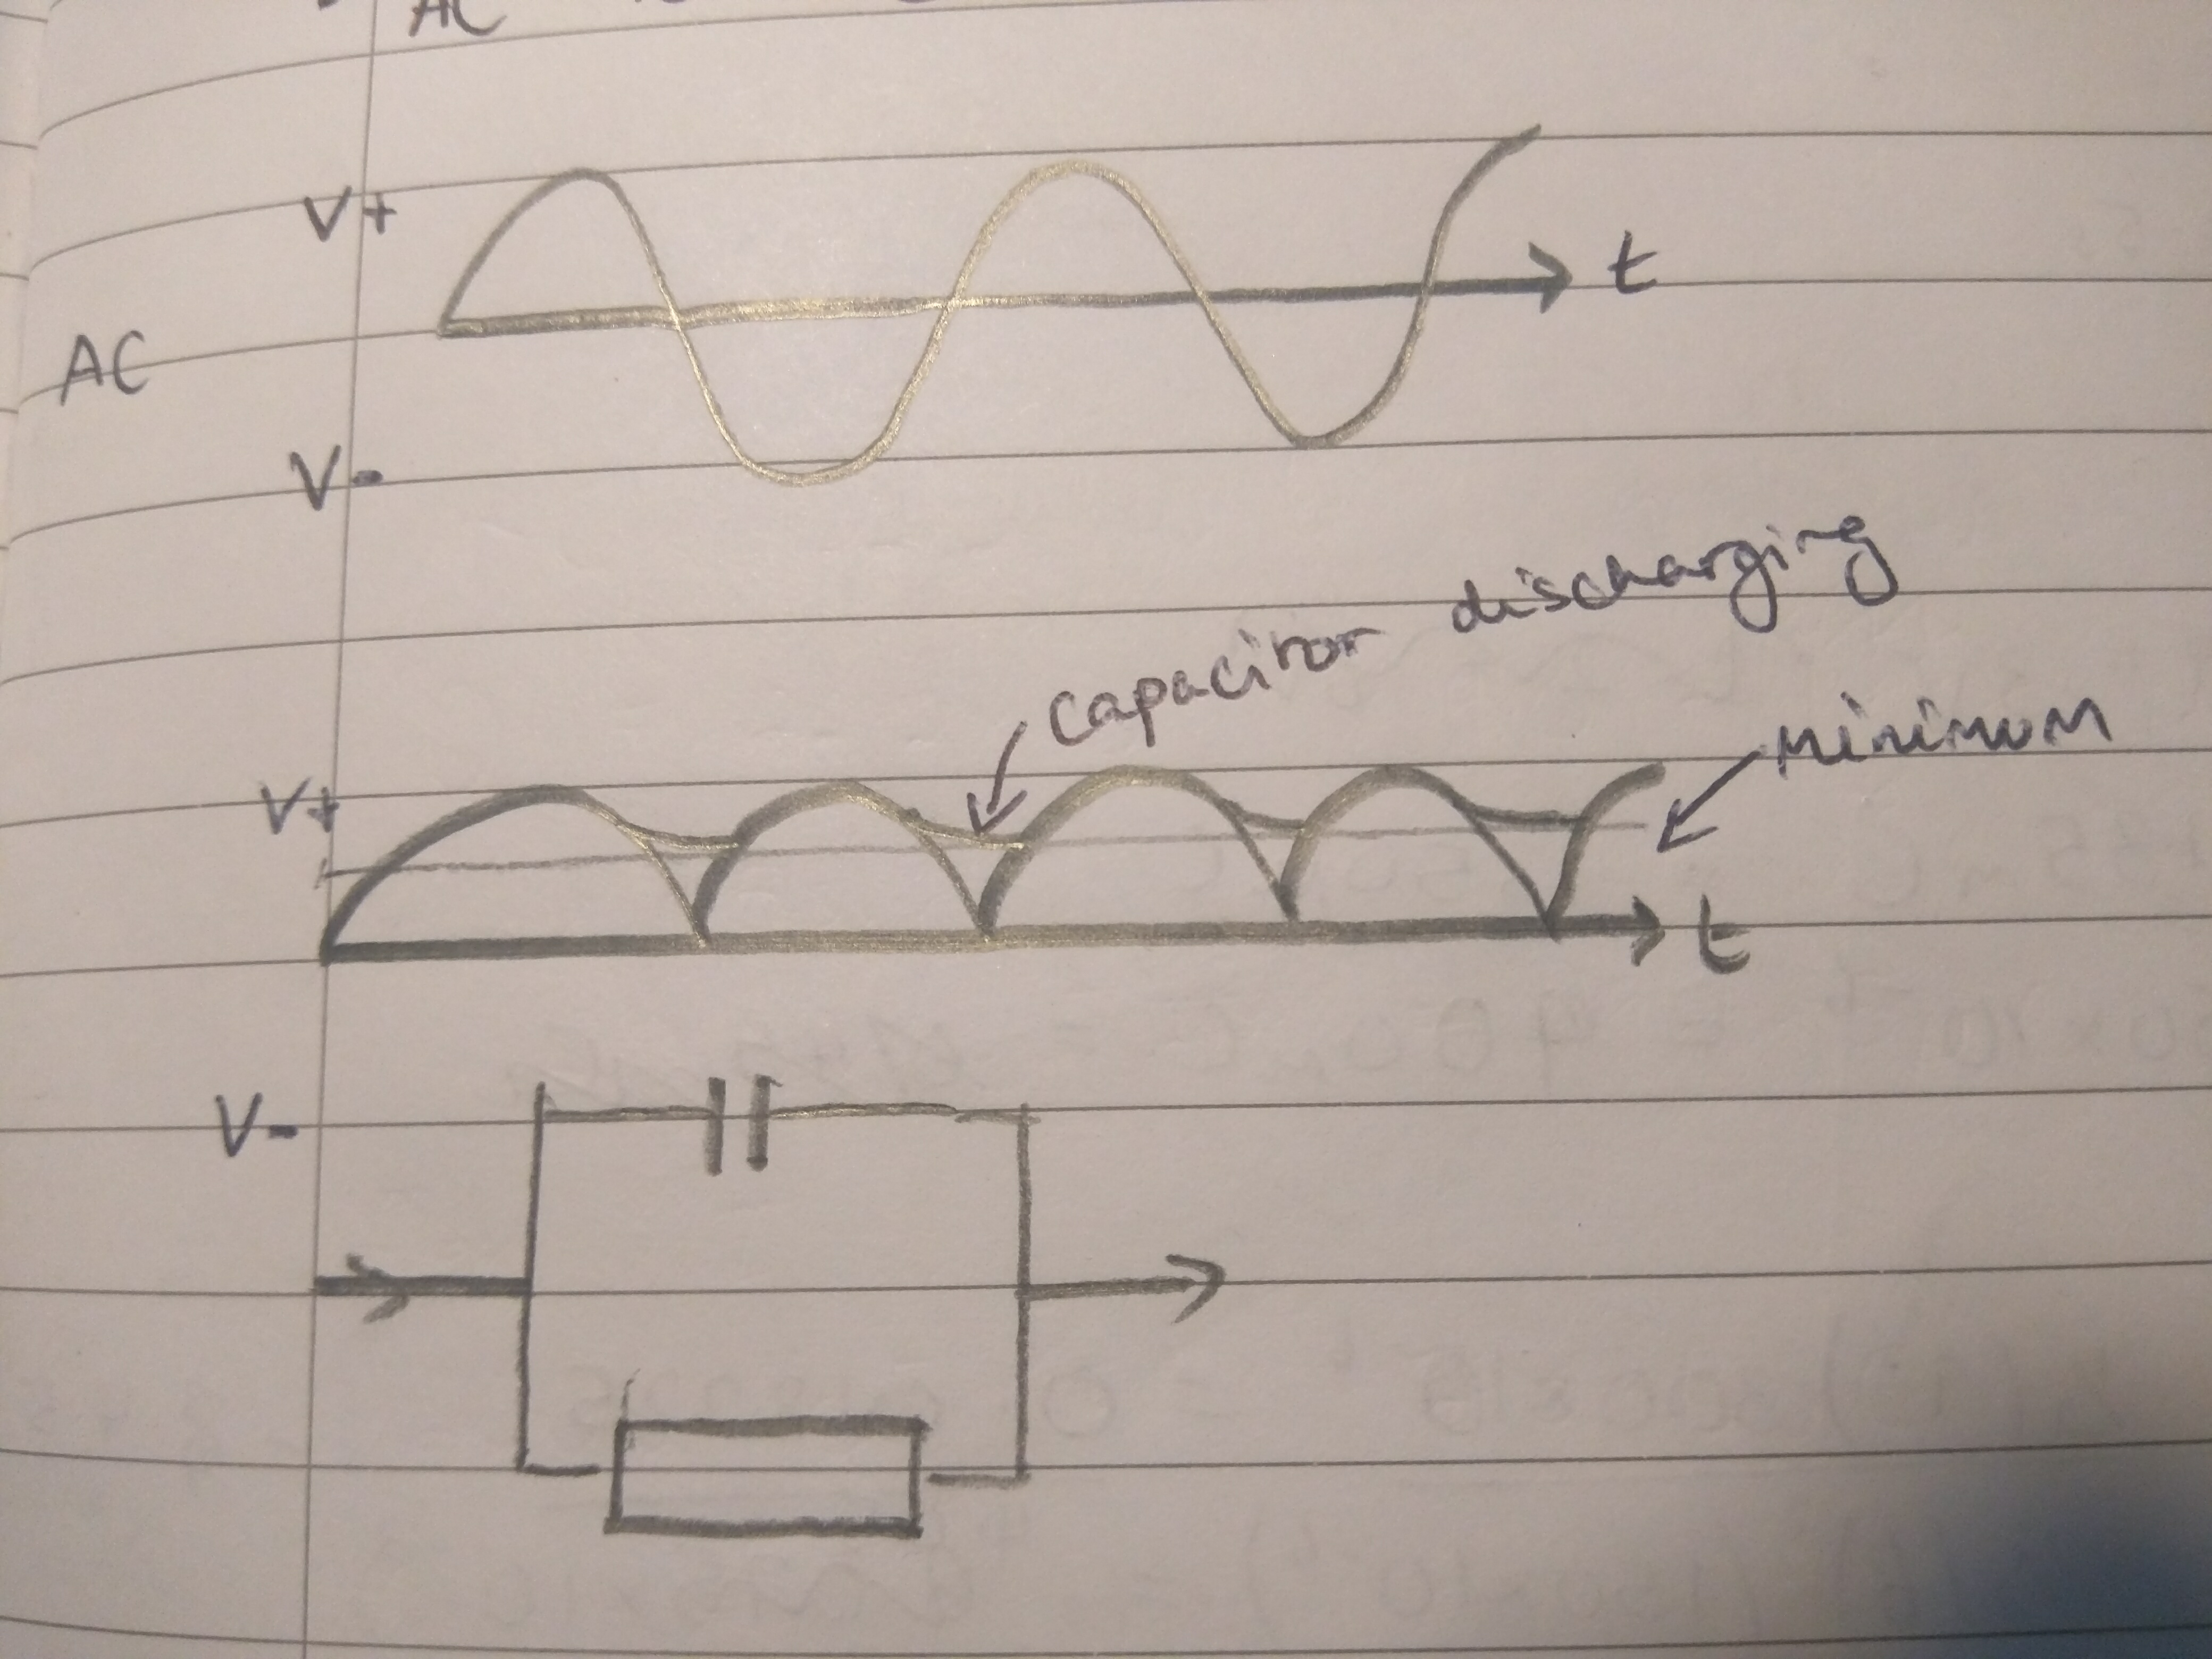 AC
V+
t
AC
V-
capacitor discharging
minimum
V+
t
V-